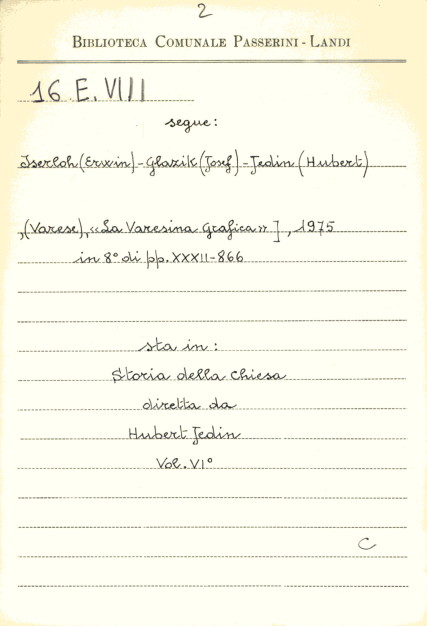 2
BIBLIOTECA COMUNALE PASSERINI - LANDI
16 E. VIII
segue:
Iserloh (Erwin) - Glazik (Josef) - Jedin (Hubert)
,(Varese), «La Varesina Grafica» ] , 1975
in 8° di pp. XXXII-866
sta in:
Storia della Chiesa
diretta da
Hubert Jedin
Vol. VI°
C